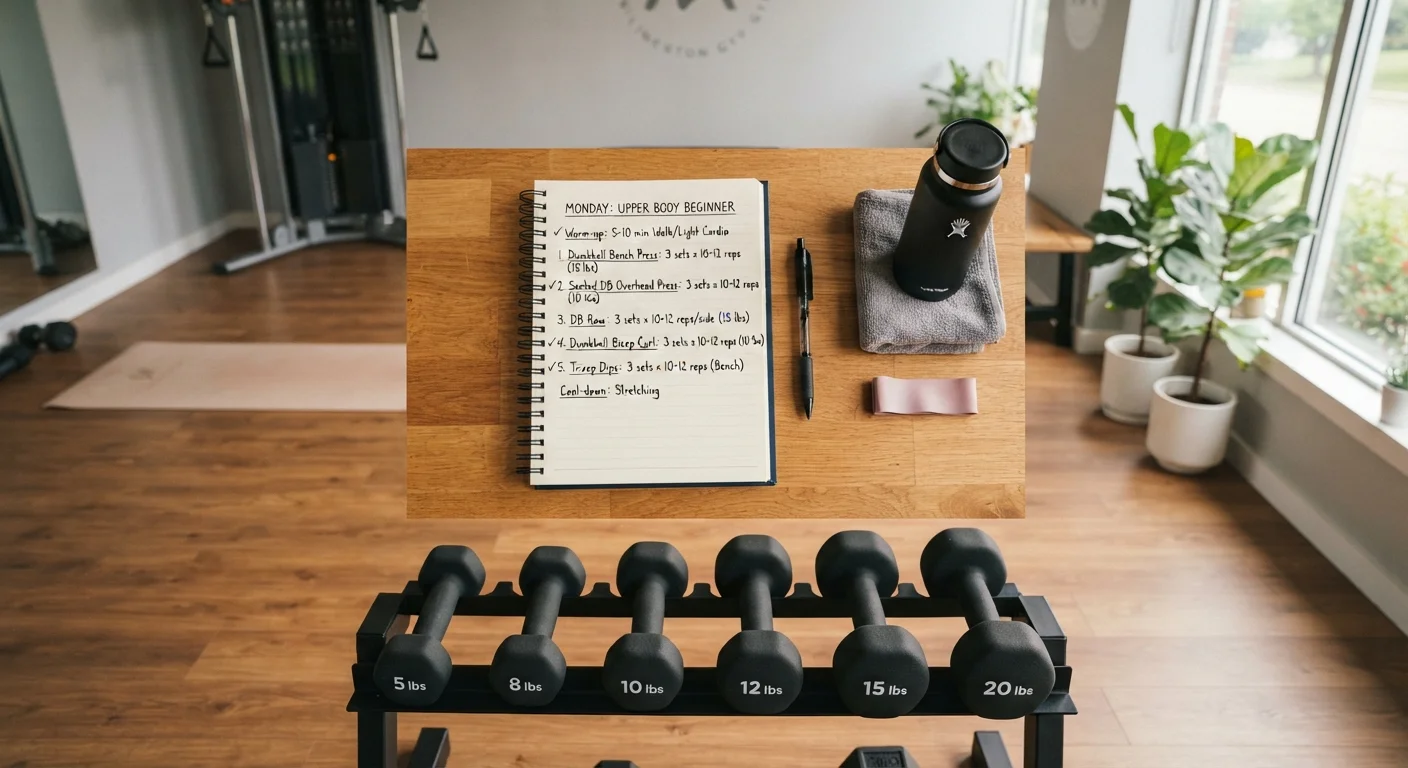 MONDAY: UPPER BODY BEGINNER
✓ Warm-up: 5-10 min Walk/Light Cardio
1. Dumbbell Bench Press: 3 sets x 10-12 reps
(15 lbs)
✓ 2. Seated DB Overhead Press: 3 sets x 10-12 reps
(10 lbs)
3. DB Row: 3 sets x 10-12 reps/side (15 lbs)
✓ 4. Dumbbell Bicep Curl: 3 sets x 10-12 reps (10 lbs)
✓ 5. Tricep Dips: 3 sets x 10-12 reps (Bench)
Cool-down: Stretching
5 lbs
8 lbs
10 lbs
12 lbs
15 lbs
20 lbs